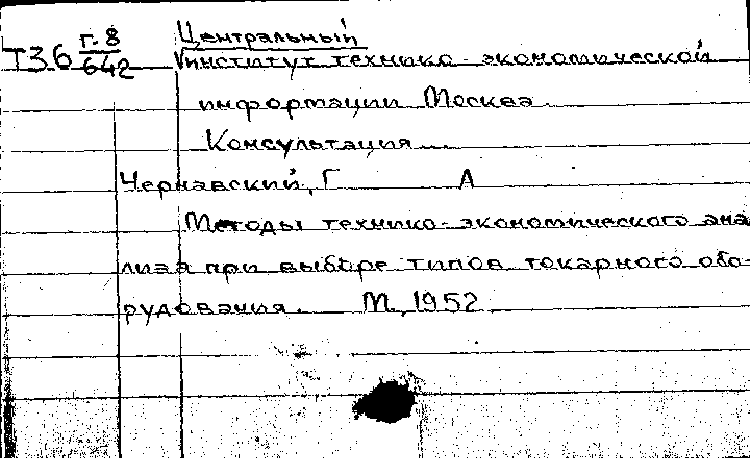 Т36 Г.8/642
Центральный
институт технико-экономической
информации Москва
Консультация
Чернавский, Г А
Методы технико-экономического ана
лиза при выборе типов токарного обо-
рудования. М, 1952